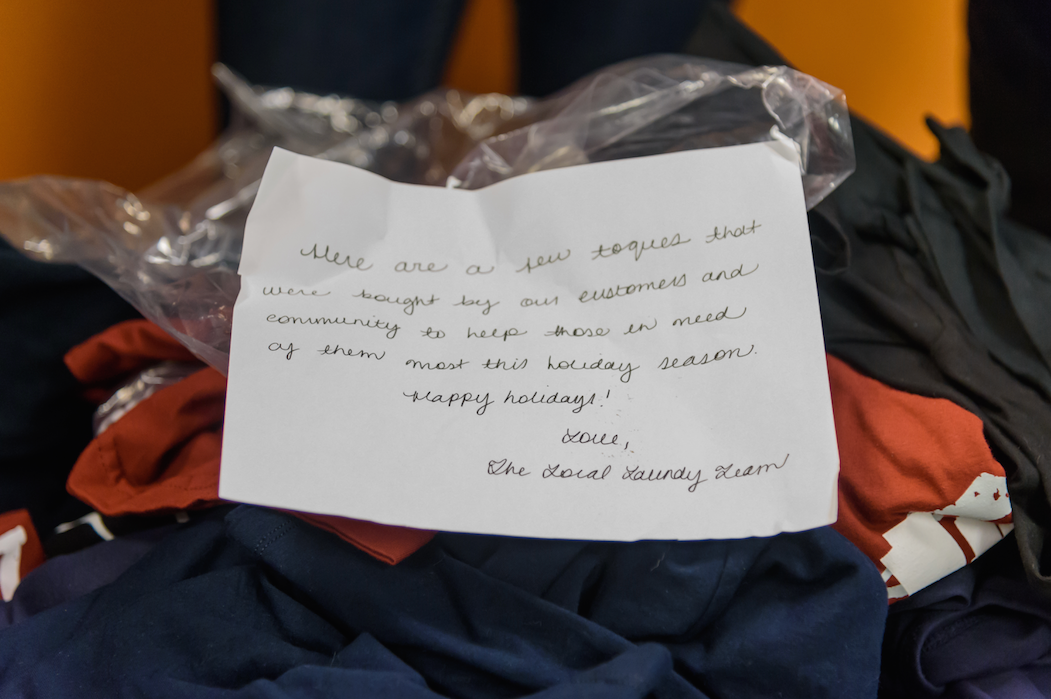 Here are a few toques that
were bought by our customers and
community to help those in need
of them most this holiday season.
Happy holidays!
Love,
The Local Laundry Team